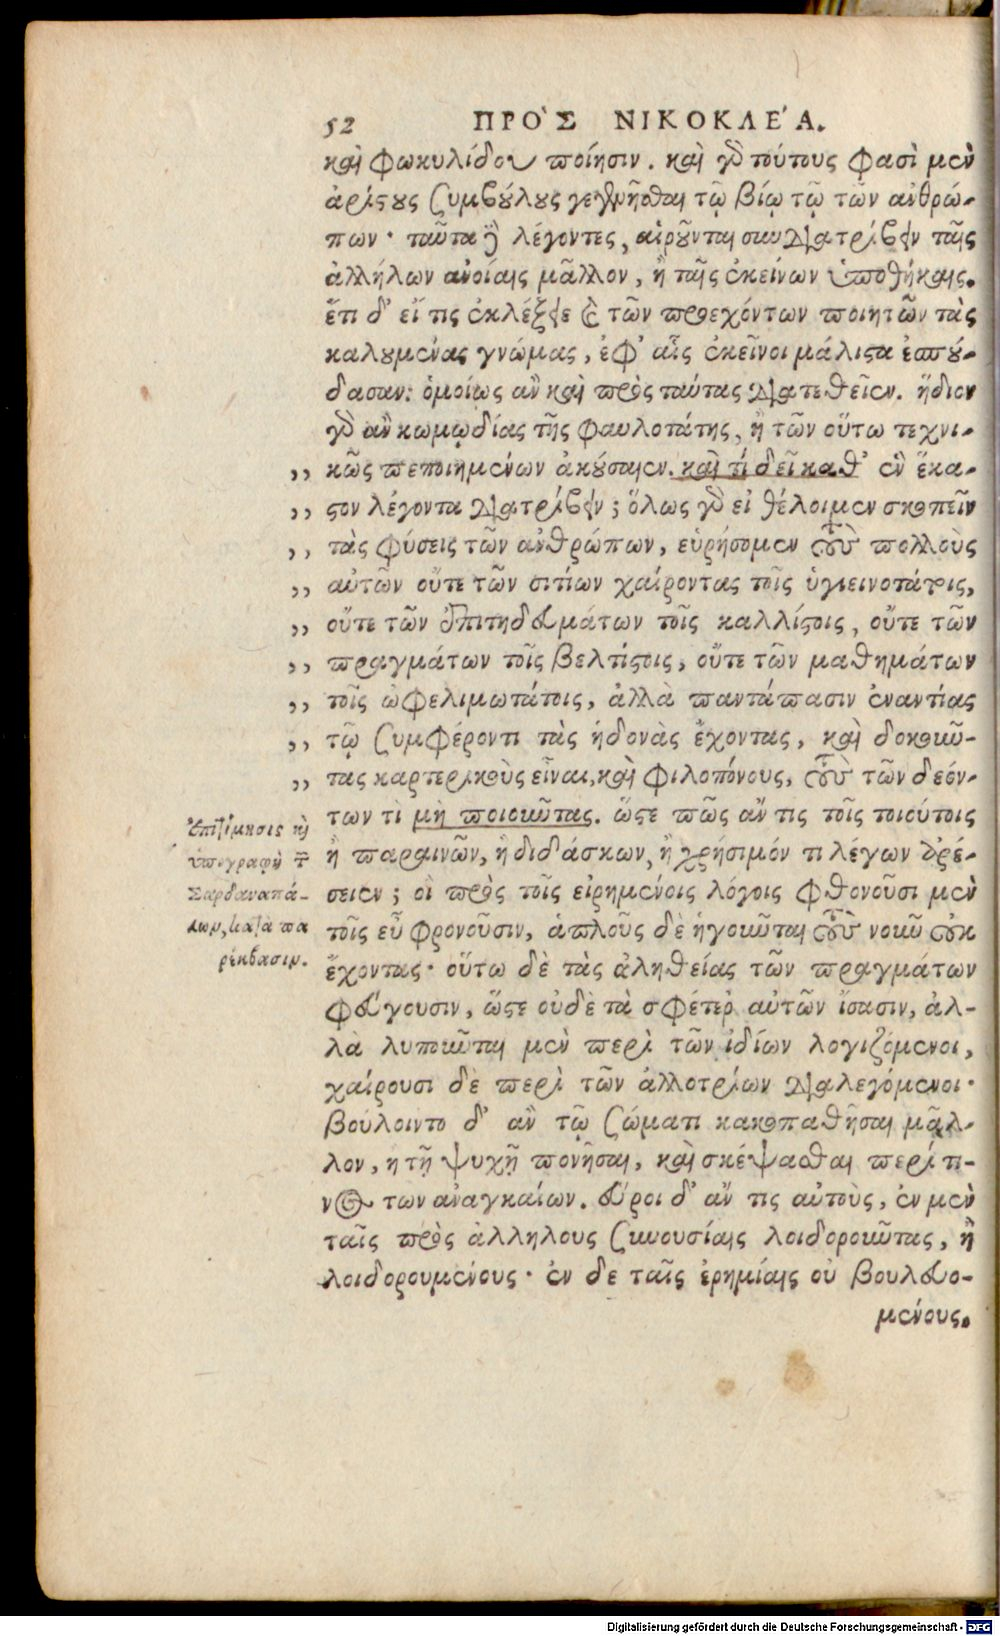 52 ΠΡΟ`Σ ΝΙΚΟΚΛΕ´Α.
καὶ Φωκυλίδου ποίησιν. καὶ γὸ τούτους φασὶ μὲν
ἀρίςους ζυμβούλους γεγῆνῆσθαι τῷ βίῳ τῷ τῶν ἀνθρώ-
πων· ταῦτα ἢ λέγοντες, αἱροῦνται συνδιατρίβειν ταῖς
ἀλλήλων ἀνοίαις μᾶλλον, ἢ ταῖς ἐκείνων ὑποθήκαις.
ἔτι δ' εἴ τις ἐκλέξειε καὶ τῶν προεχόντων ποιητῶν τὰς
καλουμένας γνώμας, ἐφ' αἷς ἐκεῖνοι μάλιςα ἐσπού-
δασαν: ὁμοίως ἂν καὶ πρὸς ταύτας διατεθεῖεν. ἥδιον
γὸ ἂν κωμῳδίας τῆς φαυλοτάτης, ἢ τῶν οὕτω τεχνι-
,, κῶς πεποιημένων ἀκούσαιεν. καὶ τί δεῖ καθ' ἓν ἕκα-
,, ςον λέγοντα διατρίβειν; ὅλως γὸ εἰ θέλοιμεν σκοπεῖν
,, τὰς φύσεις τῶν ἀνθρώπων, εὑρήσομεν τοὺς πολλοὺς
,, αὐτῶν οὔτε τῶν σιτίων χαίροντας τοῖς ὑγιεινοτάτοις,
,, οὔτε τῶν ἐπιτηδευμάτων τοῖς καλλίςοις, οὔτε τῶν
,, πραγμάτων τοῖς βελτίςοις, οὔτε τῶν μαθημάτων
,, τοῖς ὠφελιμωτάτοις, ἀλλὰ παντάπασιν ἐναντίας
,, τῷ ζυμφέροντι τὰς ἡδονὰς ἔχοντας, καὶ δοκοῦν-
,, τας καρτερικοὺς εἶναι, καὶ φιλοπόνους, τοὺς τῶν δεόν-
των τὶ μὴ ποιοῦντας. ὥςε πῶς ἄν τις τοῖς τοιούτοις
ἢ παραινῶν, ἢ διδάσκων, ἢ χρήσιμόν τι λέγων ἀρέ-
σειεν; οἳ πρὸς τοῖς εἰρημένοις λόγοις φθονοῦσι μὲν
τοῖς εὖ φρονοῦσιν, ἁπλοῦς δὲ ἡγοῦνται τοὺς νοῦν οὐκ
ἔχοντας· οὕτω δὲ τὰς ἀληθείας τῶν πραγμάτων
φεύγουσιν, ὥςε οὐδὲ τὰ σφέτερ αὐτῶν ἴσασιν, ἀλ-
λὰ λυποῦνται μὲν περὶ τῶν ἰδίων λογιζόμενοι,
χαίρουσι δὲ περὶ τῶν ἀλλοτρίων διαλεγόμενοι·
βούλοιντο δ' ἂν τῷ ζώματι κακοπαθῆσαι μᾶλ-
λον, ἢ τῇ ψυχῇ πονῆσαι, καὶ σκέψασθαι περὶ τι-
νος των ἀναγκαίων. εὕροι δ' ἄν τις αὐτοὺς, ἐν μὲν
ταῖς πρὸς ἀλλήλους ζυνουσίαις λοιδοροῦντας, ἢ
λοιδορουμένους· ἐν δε ταῖς ἐρημίαις οὐ βουλευο-
μένους.
Ἐπιτίμησις κὶ
ὑπογραφὴ τ
Σαρδαναπά-
λων, κατὰ πα
ρέκβασιν.
Digitalisierung gefördert durch die Deutsche Forschungsgemeinschaft - DFG